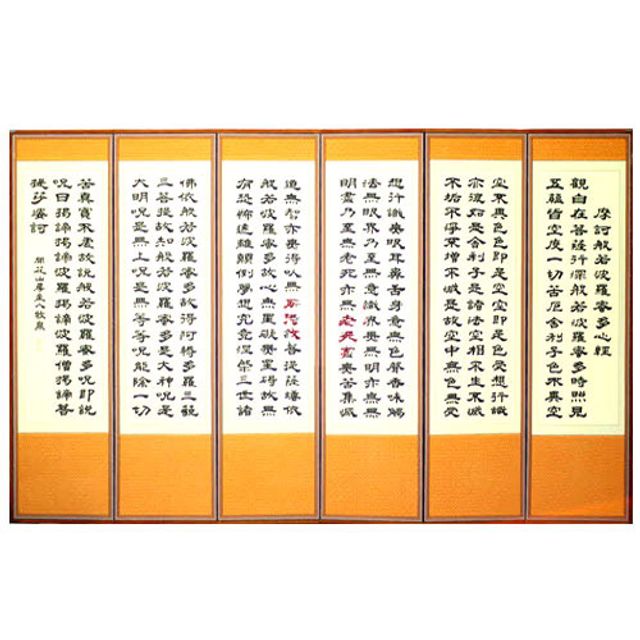 摩訶般若波羅蜜多心經
觀自在菩薩行深般若波羅蜜多時照見
五蘊皆空度一切苦厄舍利子色不異空
空不異色色即是空空即是色受想行識
亦復如是舍利子是諸法空相不生不滅
不垢不淨不增不減是故空中無色無受
想行識無眼耳鼻舌身意無色聲香味觸
法無眼界乃至無意識界無無明亦無無
明盡乃至無老死亦無老死盡無苦集滅
道無智亦無得以無所得故菩提薩埵依
般若波羅蜜多故心無罣礙無罣礙故無
有恐怖遠離顚倒夢想究竟涅槃三世諸
佛依般若波羅蜜多故得阿耨多羅三藐
三菩提故知般若波羅蜜多是大神呪是
大明呪是無上呪是無等等呪能除一切
苦眞實不虛故說般若波羅蜜多呪即說
呪曰揭諦揭諦波羅揭諦波羅僧揭諦菩
提莎婆訶